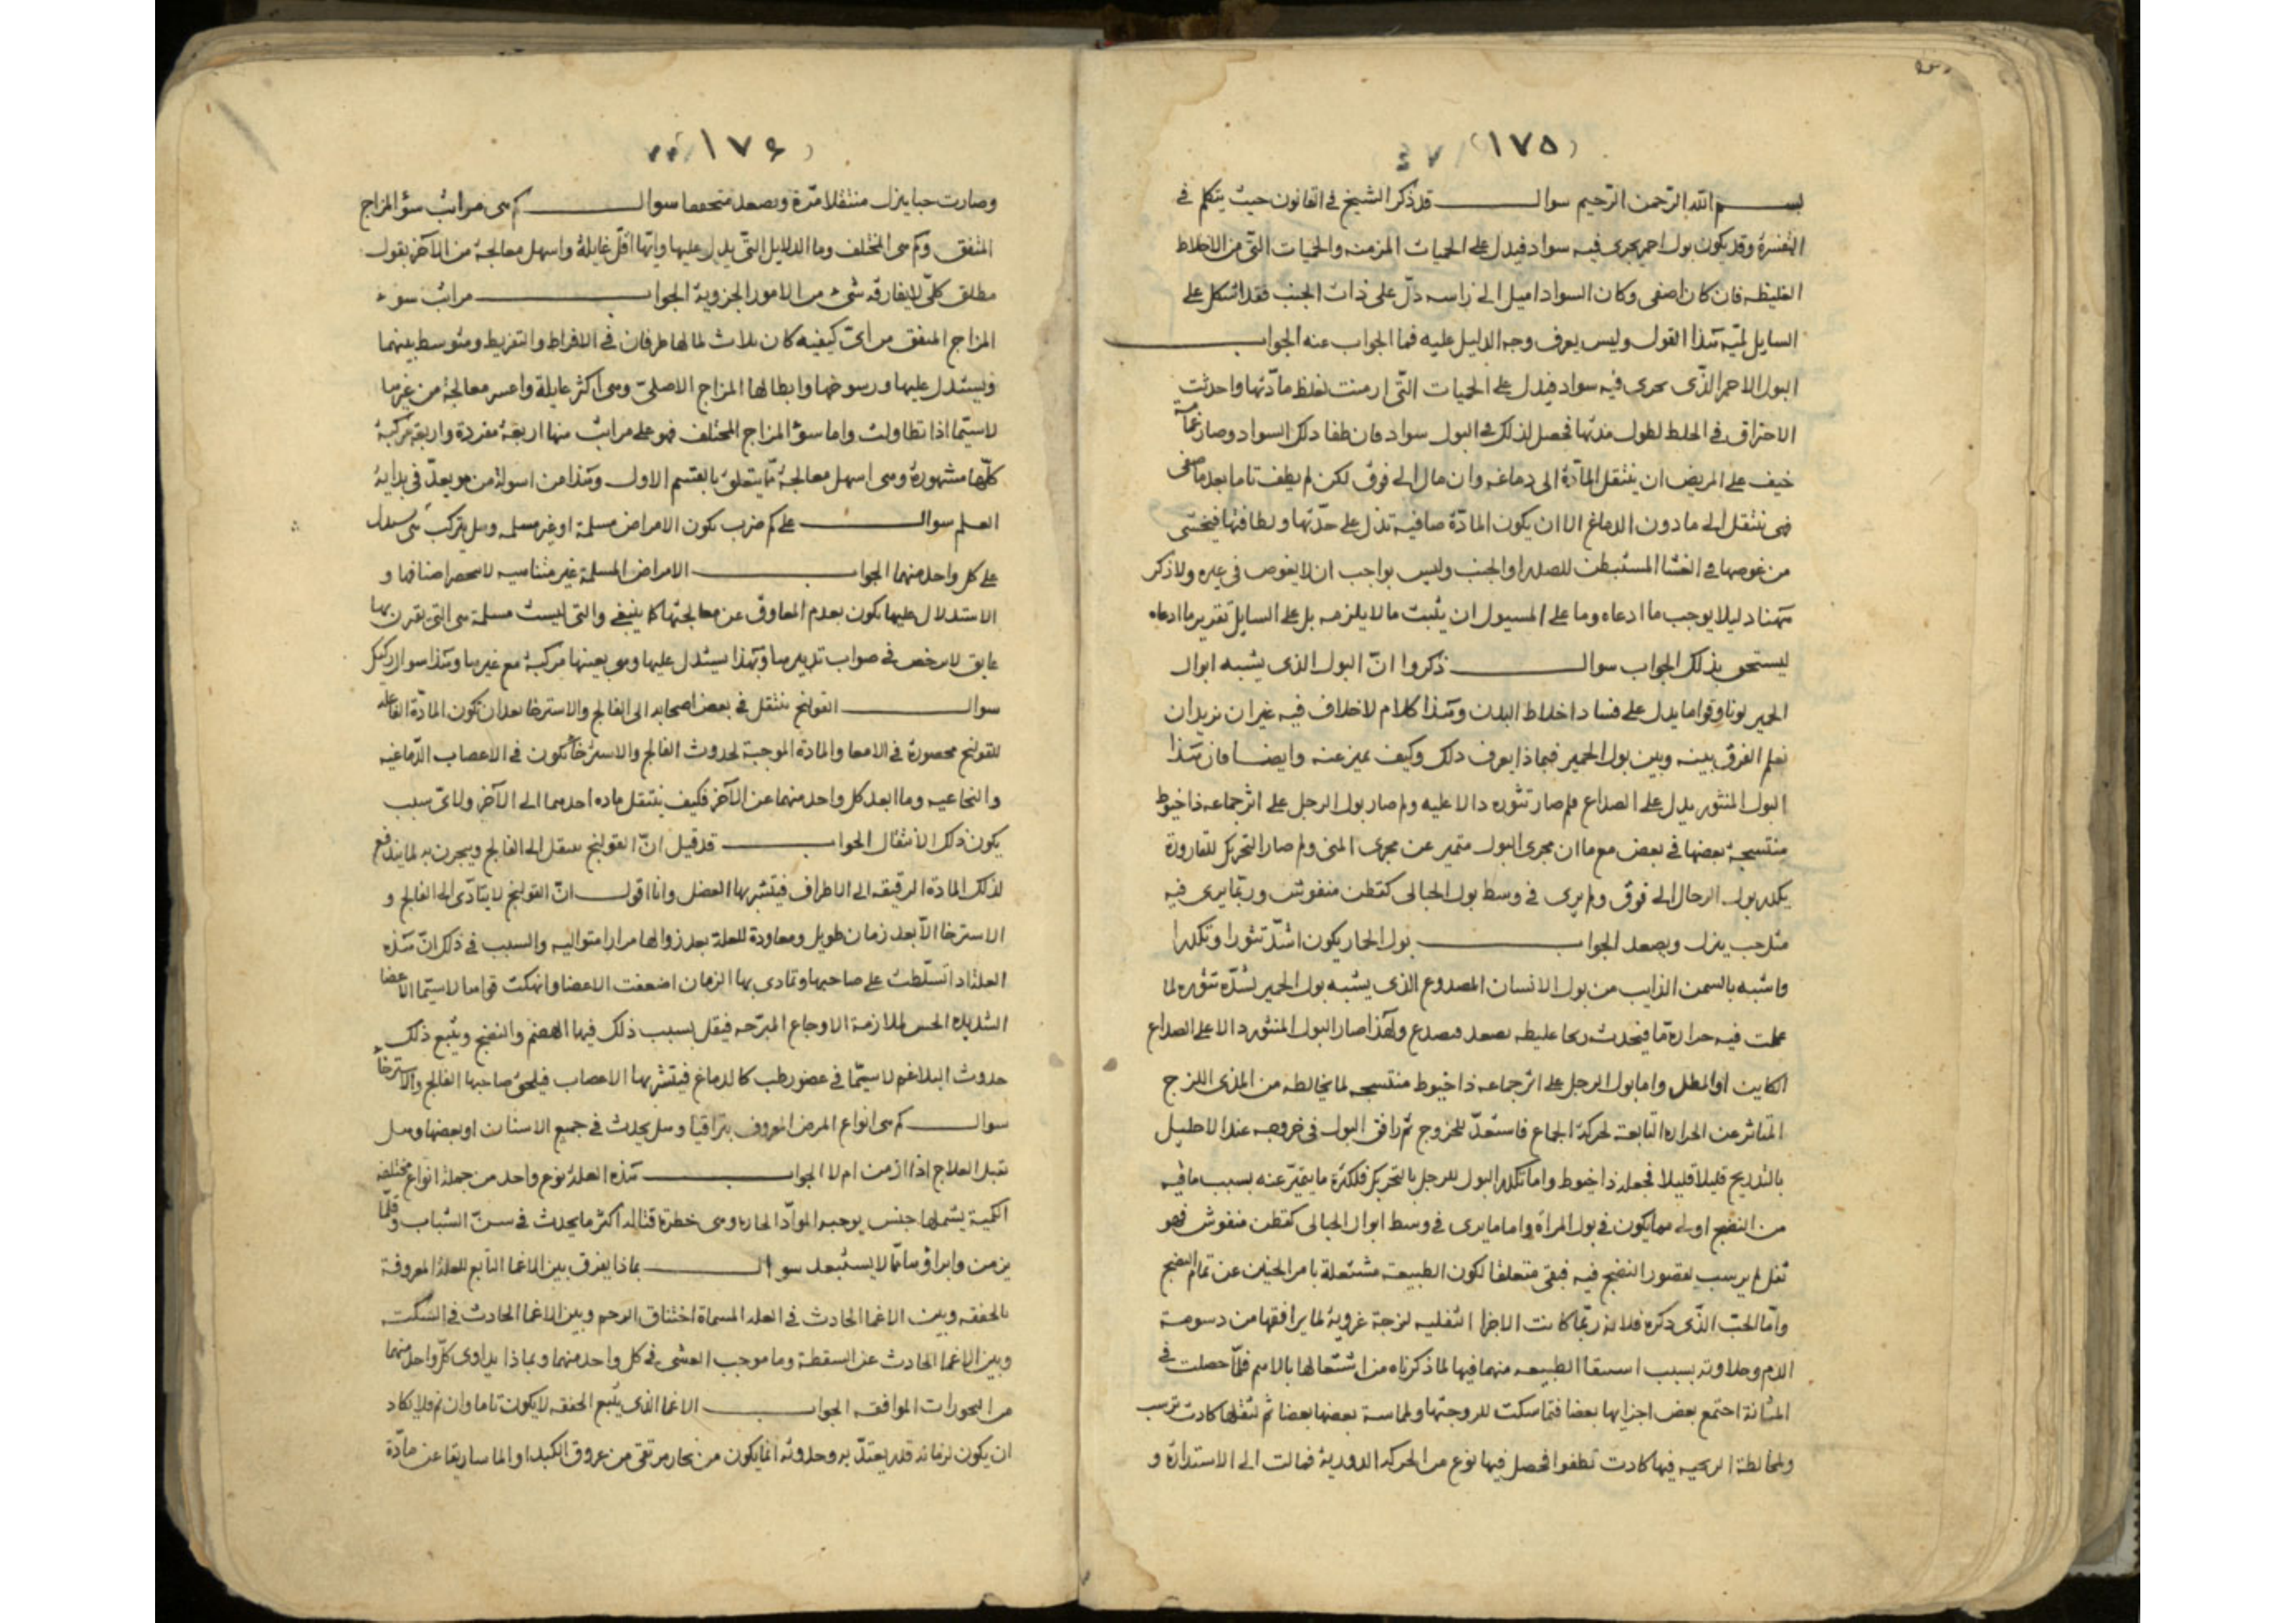 (١٧٥)
بسم الله الرحمن الرحيم سوال قد ذكر الشيخ في القانون حيث يتكلم في
التفسرة وقد يكون بول احمر يجرى فيه سواد فيدل على الحميات المزمنه والحميات التى من الاخلاط
الغليظه فان كان اصفى وكان السواد اميل الى راسه دلّ على ذات الجنب فقد اشكل على
السايل لميّة هذا القول وليس يعرف وجه الدليل عليه فما الجواب عنه الجواب
البول الاحمر الذّى يجرى فيه سواد فيدل على الحميات التّى ازمنت لغلظ مادّتها واحدثت
الاحتراق في الخلط لطول مدتها فحصل لذلك في البول سواد فان طفا ذلك السواد وصار غمامة
خيف على المريض ان ينتقل المادّة الى دماغه وان مال الى فوق لكن لم يطف تاما بعد ما صفى
فهى تنتقل الى ما دون الدماغ الا ان يكون المادّة صافية تدل على حدّتها ولطافتها فيخشى
من غوصها في الغشا المستبطن للصدر او الجنب وليس بواجب ان لا يغوص في غيره ولا ذكر
هنا دليلا يوجب ما ادعاه وما على المسيول ان يثبت ما لا يلزمه بل على السايل تقرير ما ادعاه
ليستحق بذلك الجواب سوال ذكروا انّ البول الذى يشبه ابوال
الحمير لونا وقواما يدل على فساد اخلاط البدن وهذا كلام لا خلاف فيه غير ان نريد ان
نعلم الفرق بينه وبين بول الحمير فبماذا يعرف ذلك وكيف نميز عنه وايضا فان هذا
البول المنثور يدل على الصداع فلم صار تثوره دالا عليه ولم صار بول الرجل على اثر جماعه ذا خيوط
منتسجة بعضها في بعض مع ما ان مجرى البول متميز عن مجرى المنى ولم صار التحريك للقارورة
يكدر بول الرجال الى فوق ولم يرى في وسط بول الحبالى كقطن منفوش وربّما يرى فيه
مثل حب ينزل ويصعد الجواب بول الحمار يكون اشدّ تثورا وتكدرا
واشبه بالسمن الذايب من بول الانسان المصدوع الذى يشبه بول الحمير لشدّة تثوره لما
عملت فيه حرارة ما فيحدث ريحا غليظه تصعد فتصدع ولهذا صار البول المنثور دالا على الصداع
الكاين او المطل واما بول الرجل على اثر جماعه ذا خيوط منتسجه لما يخالطه من المذى اللزج
المتاثر عن الحرارة التابعة لحركة الجماع فاستعدّ للخروج ثم رافق البول في خروجه عند الاحليل
بالتدريج قليلا قليلا فجعله ذا خيوط واما تكدر البول للرجل بالتحريك فلكثرة ما يتميّز عنه بسبب ما فيه
من النضج اولى مما يكون في بول المراة واما ما يرى في وسط ابوال الحبالى كقطن منفوش فهو
ثفل لم يرسب لقصور النضج فيه فبقى متعلقا لكون الطبيعة مشتغلة بامر الجنين عن تمام النضج
وامّا الحبّ الذّى ذكره فلانه ربّما كانت الاجزا الثفليه لزجة غروية لما يرافقها من دسومة
الدم وحلاوته بسبب الطبيعه منهما فيها لما ذكرناه من اشتغالها بالاهم فلمّا حصلت في
المثانة اجتمع بعض اجزايها بعضا فتماسكت للزوجتها ولماسة بعضها بعضا ثم لثقلها كادت ترسب
ولمخالطة الريحيه فيها كادت تطفوا فحصل فيها نوع من الحركه الدوديه فمالت الى الاستدارة و
(١٧٦)
وصارت حبا ينزل متثقلا مرّة ويصعد متخففا سوال كم هى مراتب سؤ المزاج
المتفق وكم هى المختلف وما الدلايل التّى يدل عليها وايّها اقلّ غايلة واسهل معالجة من الآخر بقول
مطلق كلّى لا يفارقه شىء من الامور الجزوية الجواب مراتب سوء
المزاج المتفق من اىّ كيفيه كان ثلاث لما لها طرفان في الافراط والتفريط ومتوسط بينهما
ويستدل عليها ورسوخها وابطالها المزاج الاصلىّ وهى اكثر غايلة واعسر معالجة من غيرها
لاسيّما اذا تطاولت واما سوء المزاج المختلف فهو على مراتب منها اربعة مفردة واربعة مركبة
كلّها مشهورة وهى اسهل معالجة ممّا يتعلق بالقسم الاول وهذا من اسولة من هو بعدّ في بداية
العلم سوال على كم ضرب يكون الامراض مسلمة او غير مسلمه وهل يتركب
على كل واحد منهما الجواب الامراض المسلمة غير متناهيه لا تحصر اصنافها و
الاستدلال عليها يكون بعدم المعاوق عن معالجتها كما ينبغى والتى ليست مسلمة هى التى يقترن بها
عايق لا يرخص في صواب تدبيرها وبهذا يستدل عليها وهى بعينها مركبة مع غيرها وهذا سوال ركيك
سوال القولنج ينتقل في بعض اصحابه الى الفالج والاسترخا بعد ان تكون المادّة الفاعله
للقولنج محصورة في الامعا والمادة الموجبة لحدوث الفالج والاسترخا تكون في الاعصاب الدّماغيه
والنخاعيه وما ابعد كل واحد منهما عن الآخر فكيف ينتقل ماده احدهما الى الآخر ولاىّ سبب
يكون ذلك الانتقال الجواب قد قيل انّ القولنج ينتقل الى الفالج ويبحرن به لما يندفع
لذلك المادة الرقيقه الى الاطراف فيتشربها العضل وانا اقول انّ القولنج لا يتادّى الى الفالج و
الاسترخا الّا بعد زمان طويل ومعاودة للعلة بعد زوالها مرارا متواليه والسبب في ذلك انّ هذه
العلة اذا تسلّطت على صاحبها وتمادى بها الزمان اضعفت الاعضا وانهكت قواها لاسيّما الاعضا
الشديده الحس لملازمة الاوجاع المبرّحه فيقل بسبب ذلك فيها الهضم والنضج ويتبع ذلك
حدوث البلاغم لاسيّما في عضو رطب كالدماغ فيتشربها الاعصاب فيلحق صاحبها الفالج والاسترخاء
سوال كم هى انواع المرض المعروف بتراقيا وهل يحدث في جميع الاسنان او بعضها وهل
يقبل العلاج اذا ازمن ام لا الجواب هذه العلة نوع واحد من جملة انواع مختلفه
الكمية يشملها جنس يوجبه الموادّ الحاره وهى خطرة قتاله اكثر ما يحدث في سنّ الشباب وقلّما
يزمن وابراؤها ممّا لا يستبعد سوال بماذا يفرق بين الاغما التابع للعلة المعروفة
بالخفقه وبين الاغما الحادث في العله المسماة اختناق الرحم وبين الاغما الحادث في السكته
وبين الاغما الحادث عن السقطة وما موجب الغشى في كل واحد منهما وبماذا يداوى كلّ واحد منهما
من البخورات الموافقه الجواب الاغما الذى يتبع الخفقه لا يكون تاما وان تم فلا يكاد
ان يكون لزمانه قدر يعتدّ به وحدوثه انما يكون من بخار مرتقى من عروق الكبد او الماساريقا عن مادّة